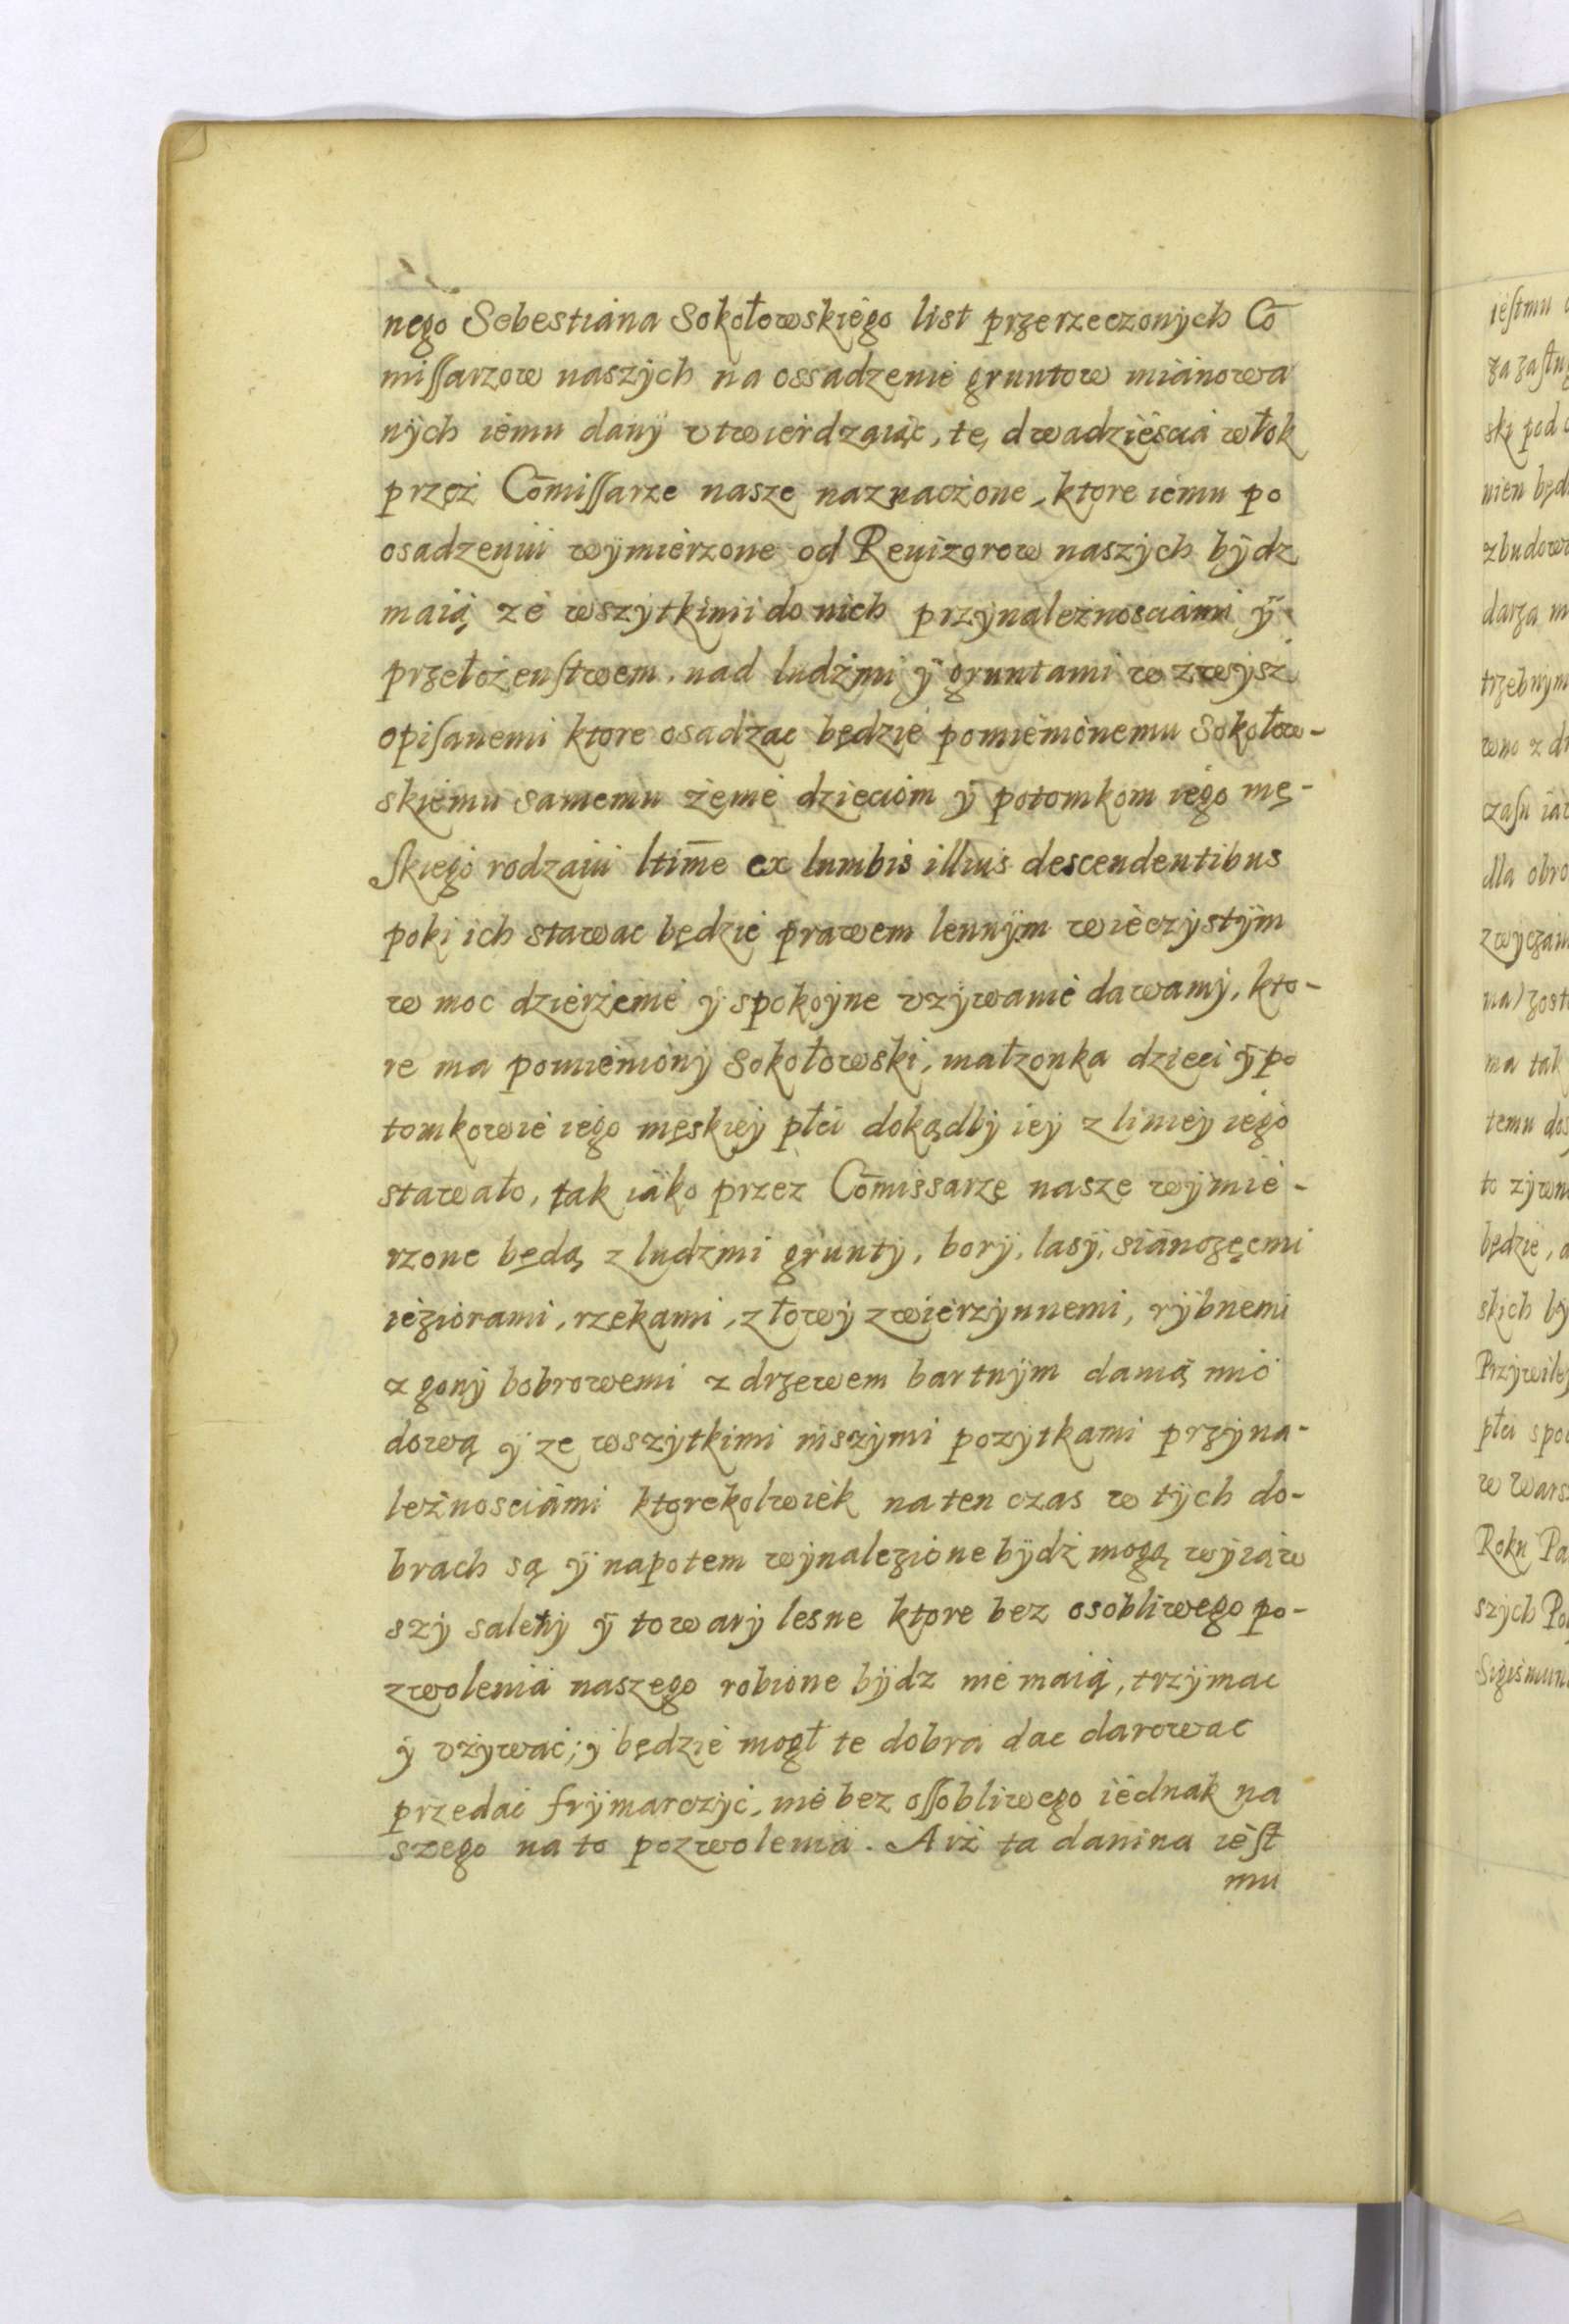 nego Sebestiana Sokołowskiego list przerzeczonych Cō
miſſarzow naszych na ossadzenie gruntow mianowa
nych iemu dany vtwierdzaiąc, te dwadzieścia włok
przez Cōmiſſarze nasze naznaczone, ktore iemu po
osadzeniu wymierzone od Reuizorow naszych bydz
maią ze wszytkimi do nich przynaleznosciami ÿ
przełożenſtwem, nad ludźmi ÿ gruntami w zwysz
opiſanemi ktore osadzac będzie pomienionemu Sokołow-
skiemu samemu żenie dzieciom ÿ potomkom iego mę-
ſkiego rodzaiu ltim̄e ex lumbis illius descendentibus
poki ich stawac będzie prawem lennym wieczystym
w moc dzierżenie ÿ spokoyne vzywanie dawamy, kto-
re ma pomieniony Sokołowski, małzonka dzieci ÿ po
tomkowie iego męskiey płci dokądby iey z liniey iego
stawało, tak iako przez Cōmissarze nasze wymie-
rzone będą z ludzmi grunty, bory, lasy, sianozęcmi
ieziorami, rzekami, z łowy zwierzynnemi, rybnemi
z gony bobrowemi z drzewem bartnym danią mio
dową ÿ ze wszytkimi inszymi pozytkami przyna-
leżnosciami ktorekolwiek na ten czas w tych do-
brach są ÿ napotem wynalezione bydź mogą wyiąw
szy saletry ÿ towary lesne ktore bez osobliwego po-
zwolenia naszego robione bydz nie maią, trzymac
ÿ vżywać; ÿ będzie mogł te dobra dac darowac
przedać frymarczyć, nie bez oſſobliwego iednak na
szego na to pozwolenia. A iż ta danina ieſt
mu